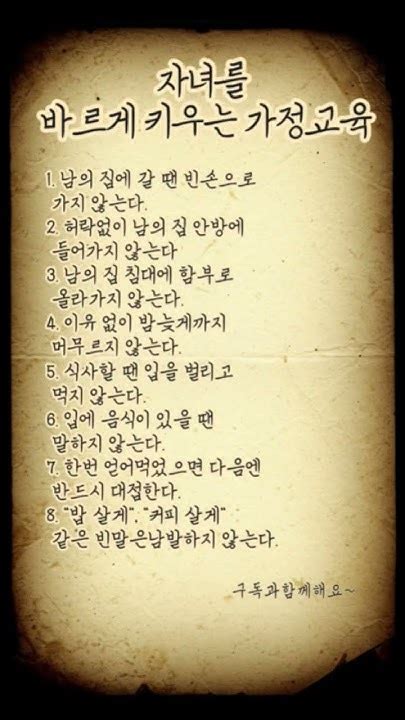 자녀를
바르게 키우는 가정교육
1. 남의 집에 갈 땐 빈손으로
가지 않는다.
2. 허락없이 남의 집 안방에
들어가지 않는다
3. 남의 집 침대에 함부로
올라가지 않는다.
4. 이유 없이 밤늦게까지
머무르지 않는다.
5. 식사할 땐 입을 벌리고
먹지 않는다.
6. 입에 음식이 있을 땐
말하지 않는다.
7. 한번 얻어먹었으면 다음엔
반드시 대접한다.
8. "밥 살게", "커피 살게"
같은 빈말은남발하지 않는다.
구독과함께해요~